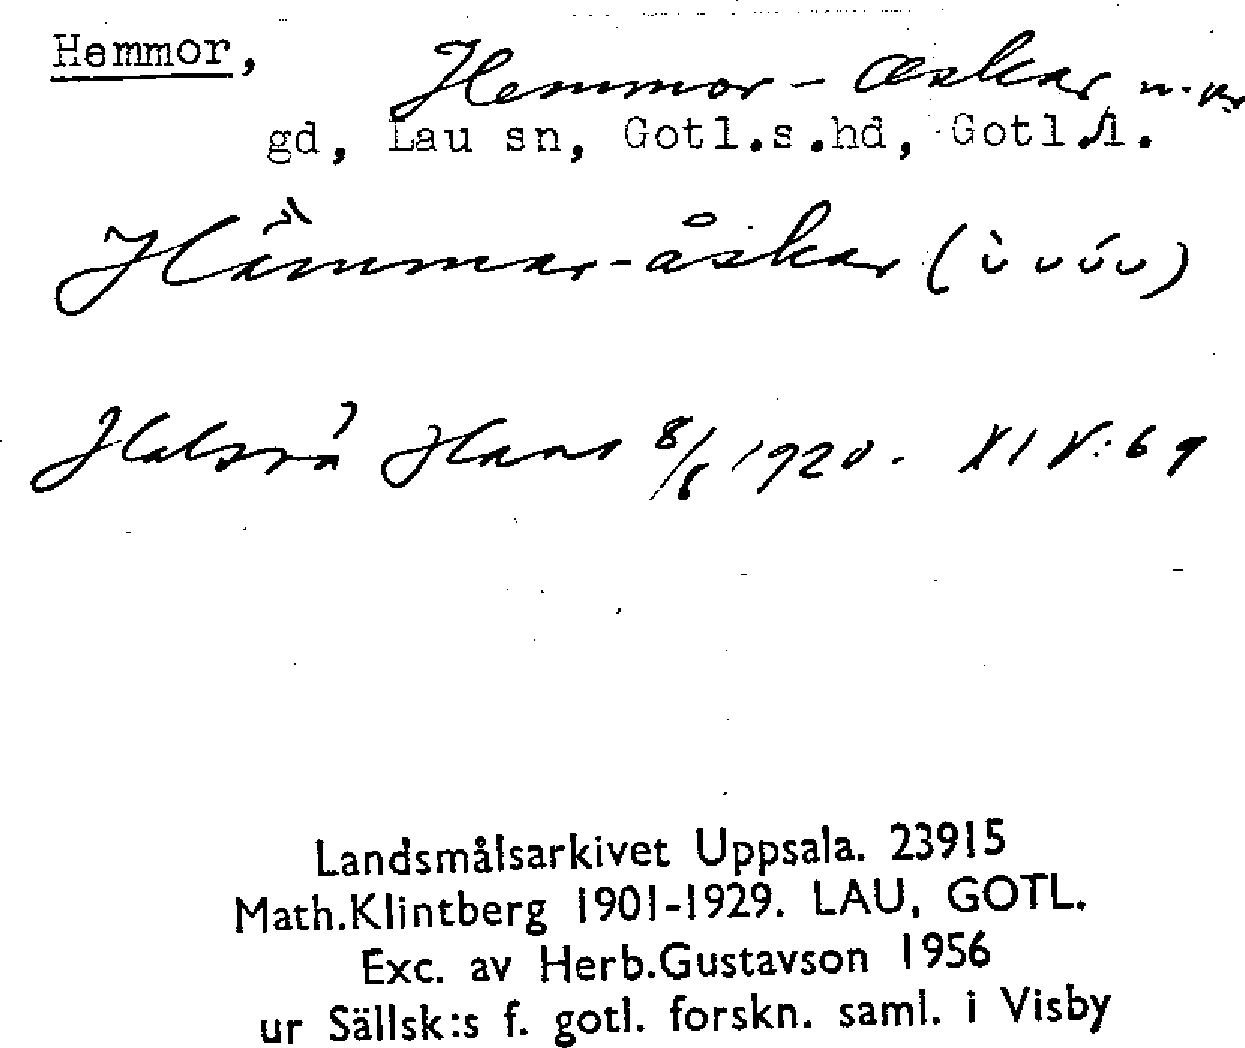 Hemmor, Hemmor-Oskar
gd, Lau sn, Gotl.s.hd, Gotl.
Hämmar-åskar (ù u ú u)
Hans 8/6 1920. XIV:69
Landsmålsarkivet Uppsala. 23915
Math.Klintberg 1901-1929. LAU, GOTL.
Exc. av Herb.Gustavson 1956
ur Sällsk:s f. gotl. forskn. saml. i Visby